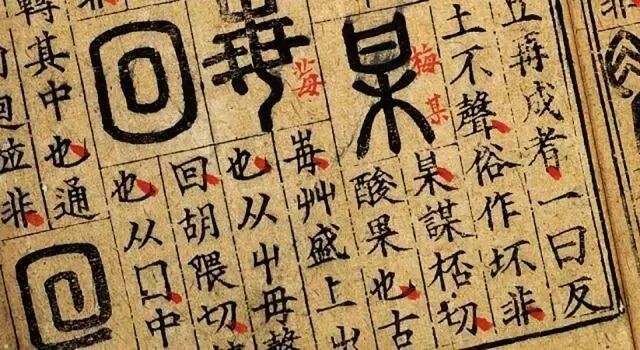 丘再成者一曰反
土不聲俗作坏非
某
梅
某
某謀桮切
酸果也古
每艸盛上出
也从屮毋聲
回
回胡隈切
也从囗中
轉其中也通
迴竝非